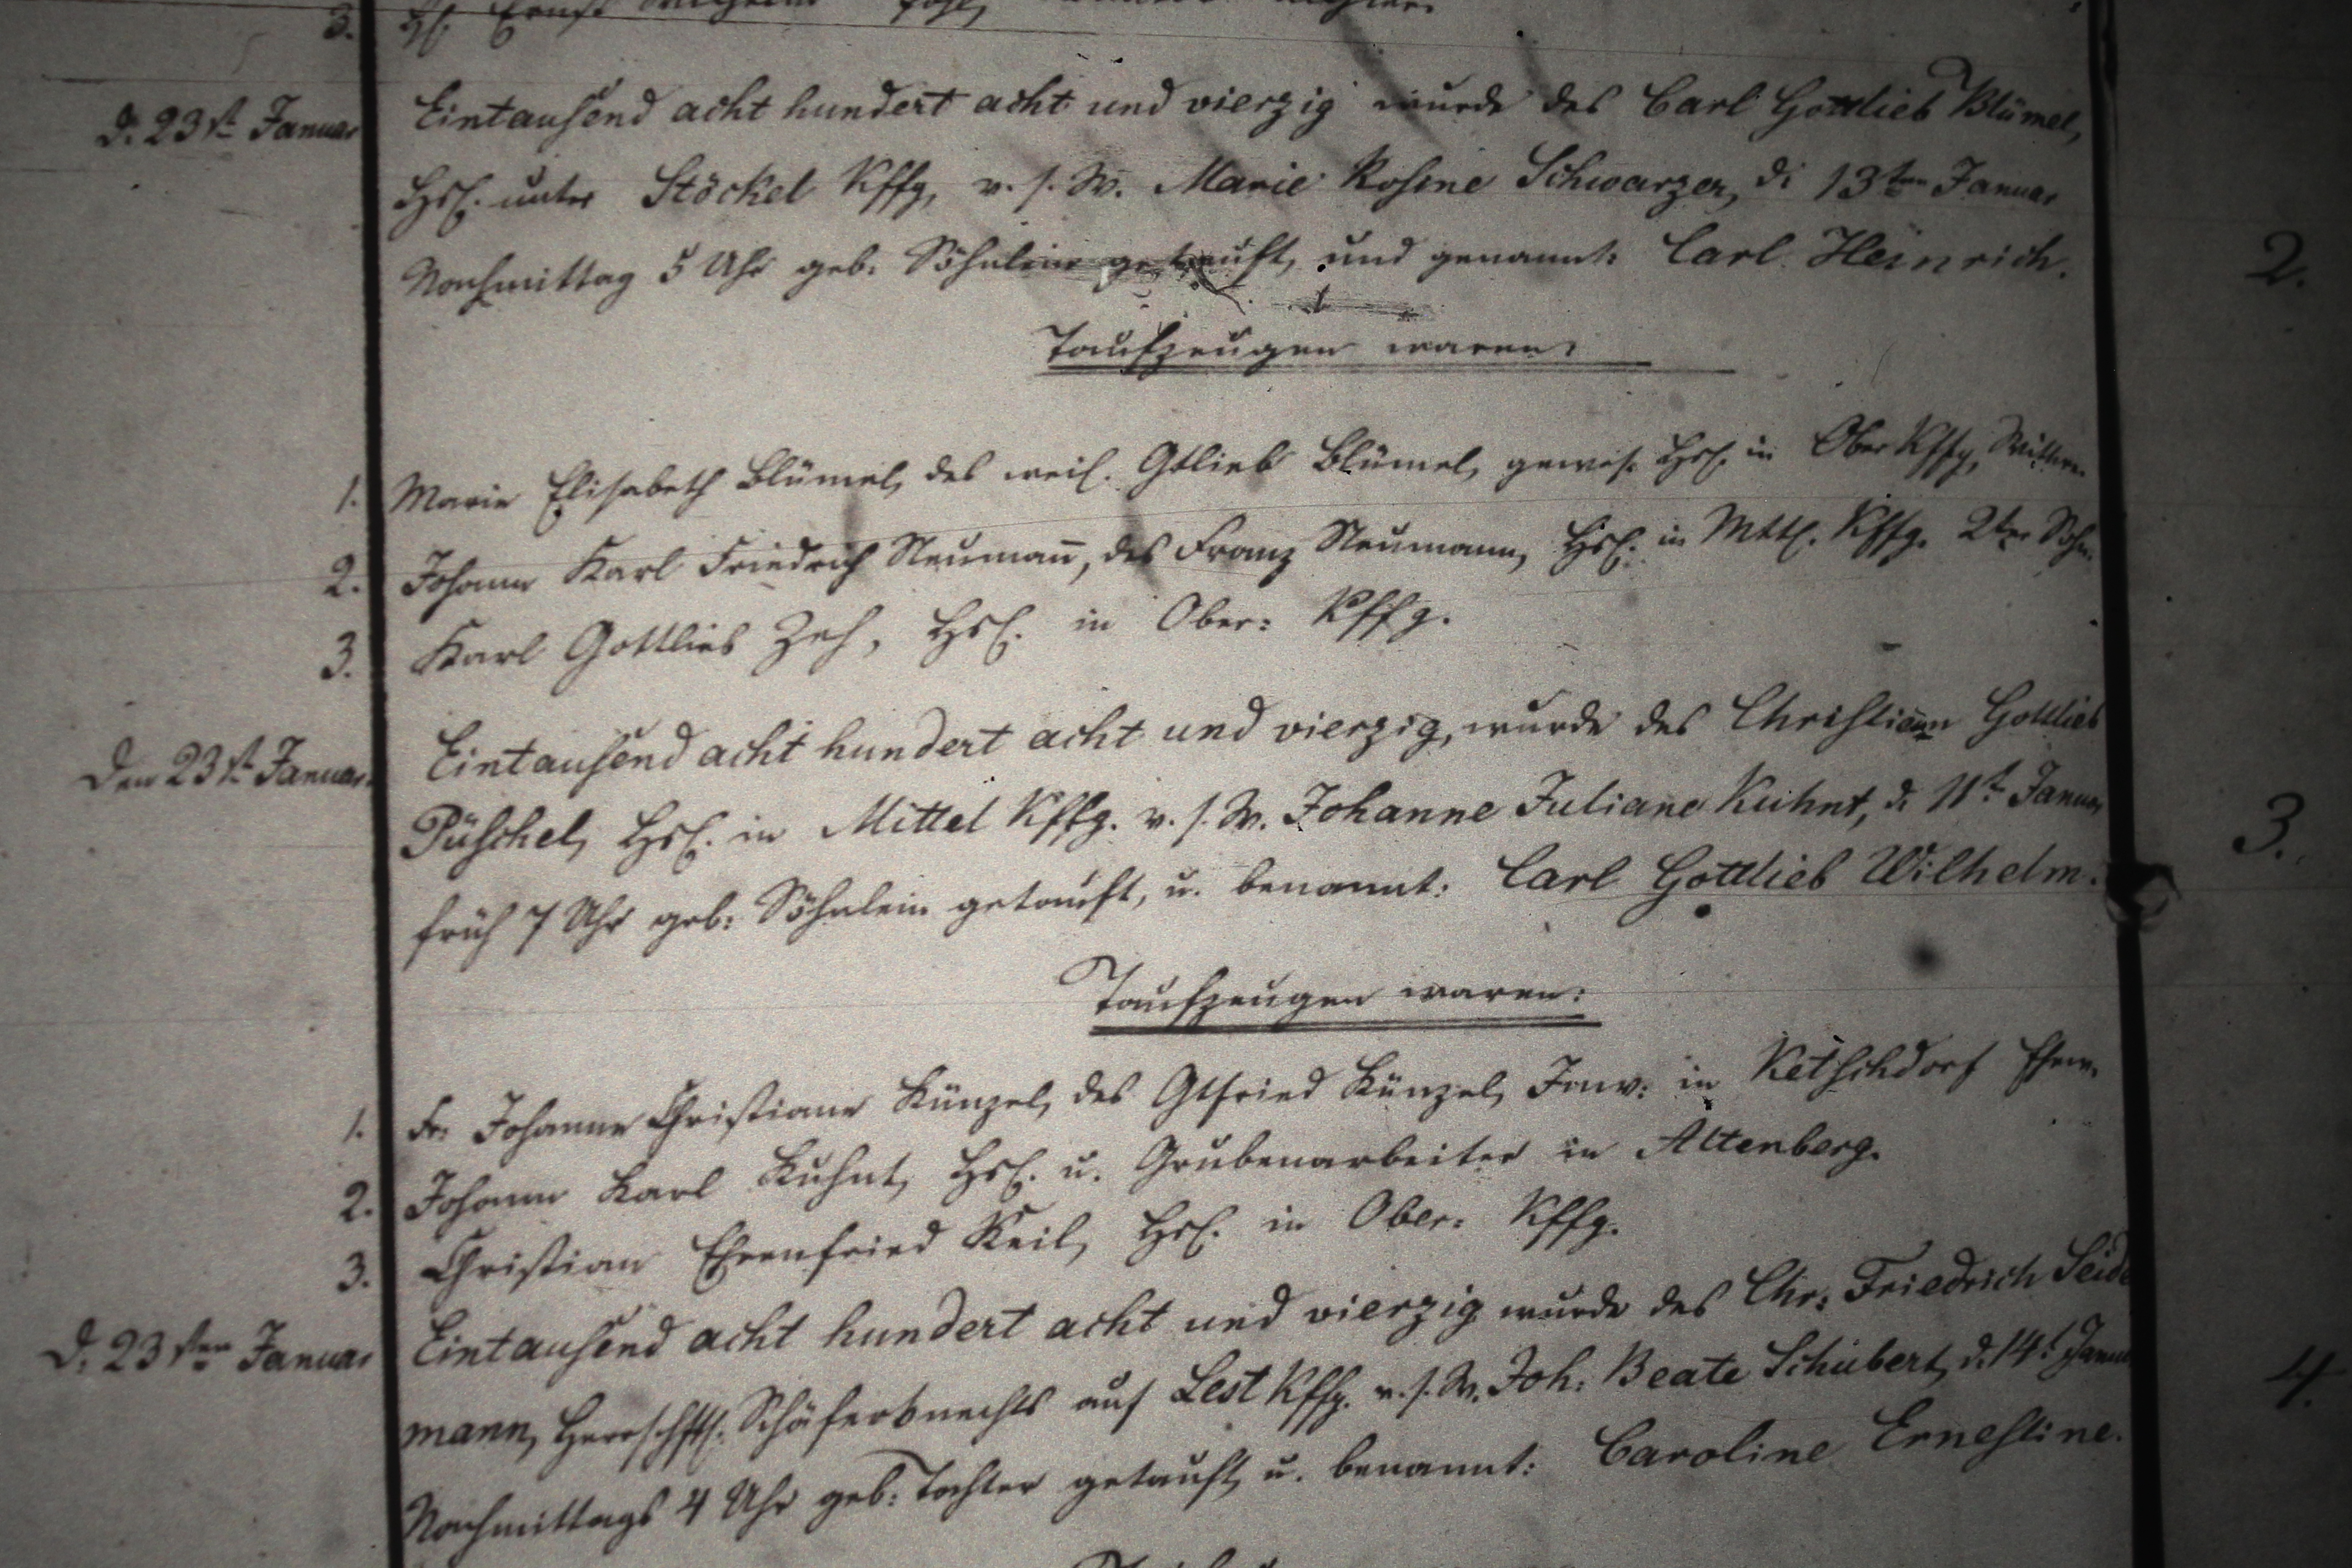 3. Hsl. Ernst Wilhelm
d. 23st. Januar Eintausend acht hundert acht und vierzig wurde des Carl Gottlieb Blümel,
Hsl. unter Stöckel Kffg, v. s. W. Marie Rosine Schwarzer, di 13ten Januar
Nachmittag 5 Uhr geb. Söhnlein getauft, und genannt: Carl Heinrich. 2.
Taufzeugen waren:
1. Marie Elisabeth Blümel, des weil. Gtlieb Blümel, gewes. Hsl. in Ober Kffg, Wittwe.
2. Johann Karl Friedrich Neumañ, des Franz Neumann, Hsl. in Mttl. Kffg. 2ter Sohn.
3. Karl Gottlieb Zeh, Hsl. in Ober: Kffg.
Den 23st. Januar. Eintausend acht hundert acht und vierzig, wurde des Christian Gottlieb
Püschel, Hsl. in Mittel Kffg. v. s. W. Johanne Juliane Kuhnt, d. 11t. Januar 3.
früh 7 Uhr geb: Söhnlein getauft, u. benannt: Carl Gottlieb Wilhelm.
Taufzeugen waren:
1. Fr. Johanne Christiane Künzel, des Gtfried Künzel, Inw: in Ketschdorf Ehew.
2. Johann Karl Kuhnt, Hsl. u. Grubenarbeiter in Altenberg.
3. Christian Ehrenfried Keil, Hsl. in Ober: Kffg.
d. 23sten Januar Eintausend acht hundert acht und vierzig wurde des Chr: Friedrich Seide
mann, Herrschftl. Schäferknechts auf Lest Kffg. v. s. W. Joh: Beate Schubert, d. 14t. Januar 4.
Nachmittags 4 Uhr geb: Tochter getauft, u. benannt: Caroline Ernestine.